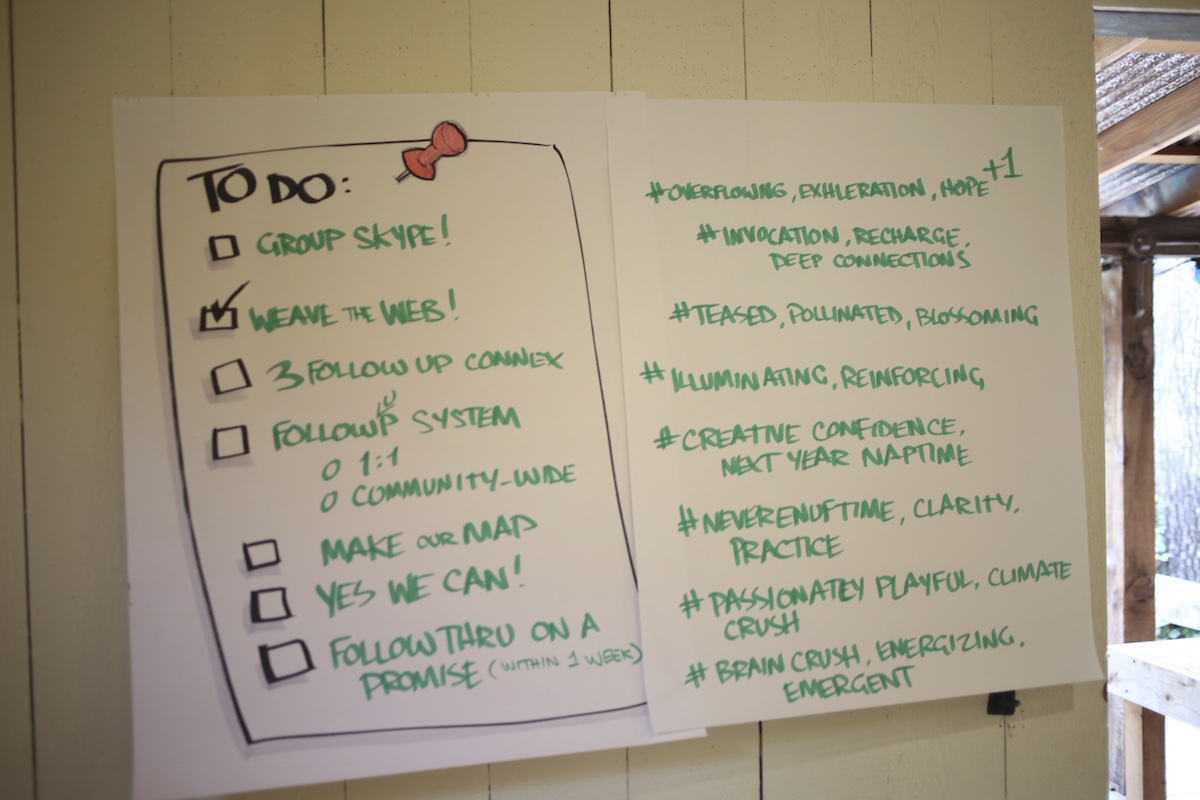 TO DO:
GROUP SKYPE!
WEAVE THE WEB!
3 FOLLOW UP CONNEX
FOLLOW UP SYSTEM
O 1:1
O COMMUNITY-WIDE
MAKE OUR MAP
YES WE CAN!
FOLLOW THRU ON A
PROMISE (WITHIN 1 WEEK)
#OVERFLOWING, EXHILERATION, HOPE +1
#INVOCATION, RECHARGE,
DEEP CONNECTIONS
#TEASED, POLLINATED, BLOSSOMING
#ILLUMINATING, REINFORCING
#CREATIVE CONFIDENCE,
NEXT YEAR NAPTIME
#NEVERENUFTIME, CLARITY,
PRACTICE
#PASSIONATELY PLAYFUL, CLIMATE
CRUSH
#BRAIN CRUSH, ENERGIZING,
EMERGENT